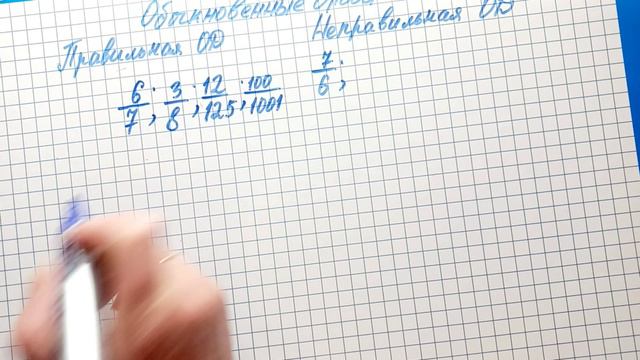 Обыкновенные
Правильная ОД
Неправильная ОД
6/7; 3/8; 12/125; 100/1001
7/6;